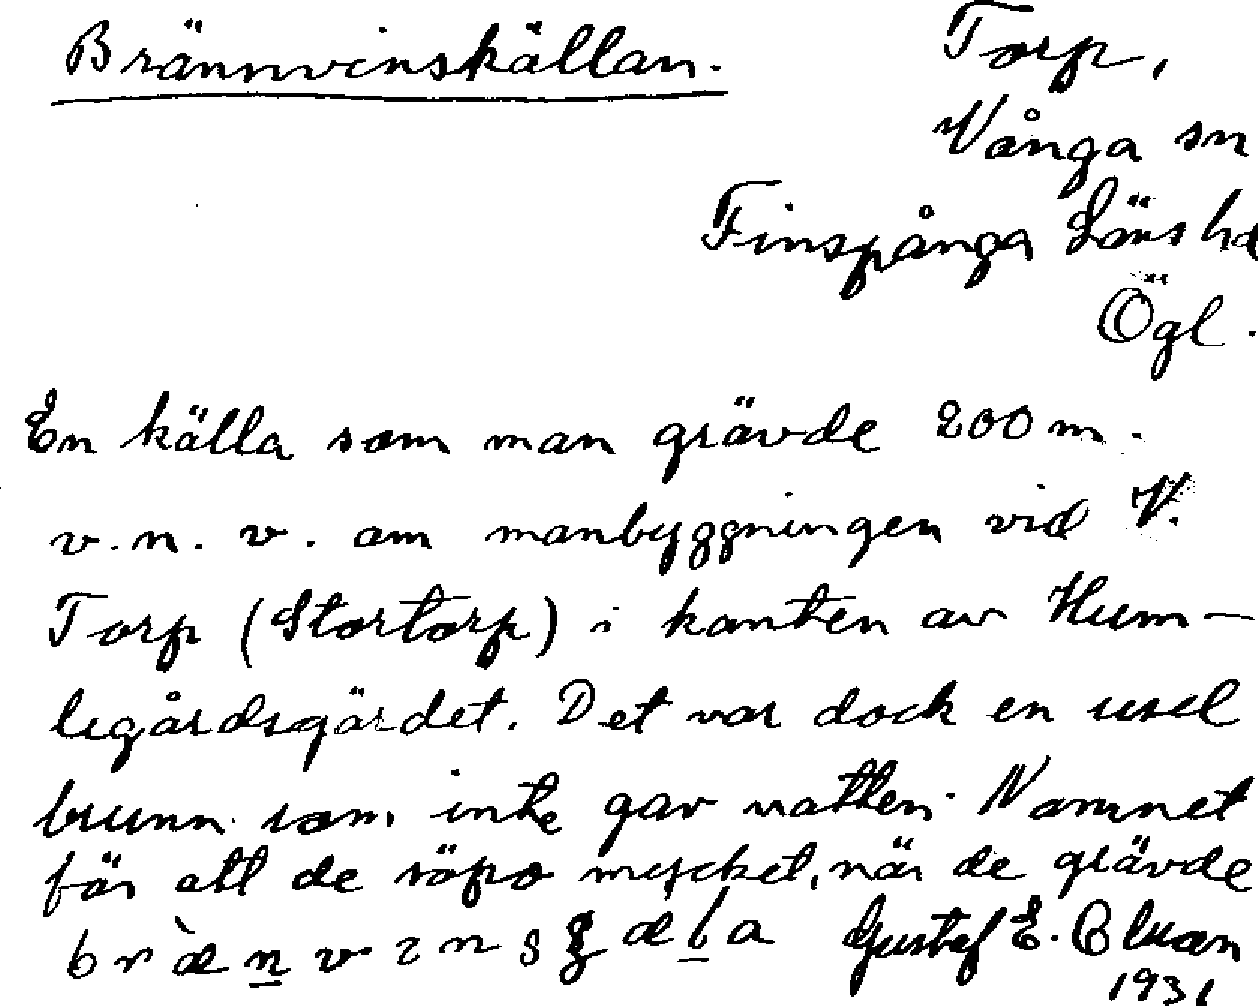 Brännvinskällan.
Torp,
Vånga sn
Finspånga Läns hd
Ögl.
En källa som man grävde 200 m.
v.n.v. om manbyggningen vid V.
Torp (Stortorp) i kanten av Hum-
legårdsgärdet. Det var dock en usel
brunn som inte gav vatten. Namnet
för att de söpo mycket, när de grävde
Gustef E.
1931